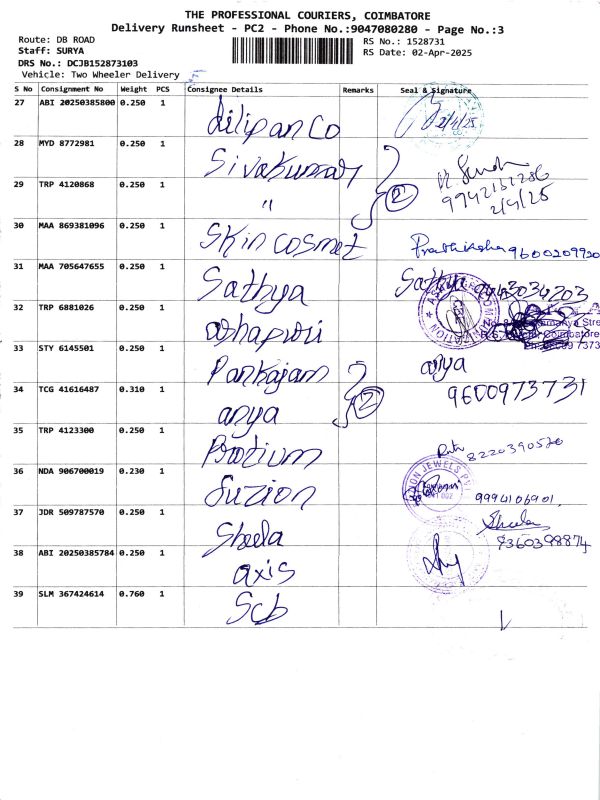 THE PROFESSIONAL COURIERS, COIMBATORE
Delivery Runsheet - PC2 - Phone No.:9047080280 - Page No.:3
Route: DB ROAD
Staff: SURYA
DRS No.: DCJB152873103
Vehicle: Two Wheeler Delivery
RS No.: 1528731
RS Date: 02-Apr-2025
S No Consignment No Weight PCS Consignee Details Remarks Seal & Signature
27 ABI 20250385800 0.250 1 dilipan co 2/4/25
28 MYD 8772981 0.250 1 Sivakumar
29 TRP 4120868 0.250 1 " 2 9942131286
2/4/25
30 MAA 869381096 0.250 1 Skin cosmet 9600209920
31 MAA 705647655 0.250 1 Sathya Sathya
32 TRP 6881026 0.250 1
33 STY 6145501 0.250 1 Pankajam anya
34 TCG 41616487 0.310 1 anya 2 9600973731
35 TRP 4123300 0.250 1 8220390520
36 NDA 906700019 0.230 1 Suzion 9994106901
37 JDR 509787570 0.250 1 Sheela Sheela
9360398874
38 ABI 20250385784 0.250 1 axis
39 SLM 367424614 0.760 1 Scb